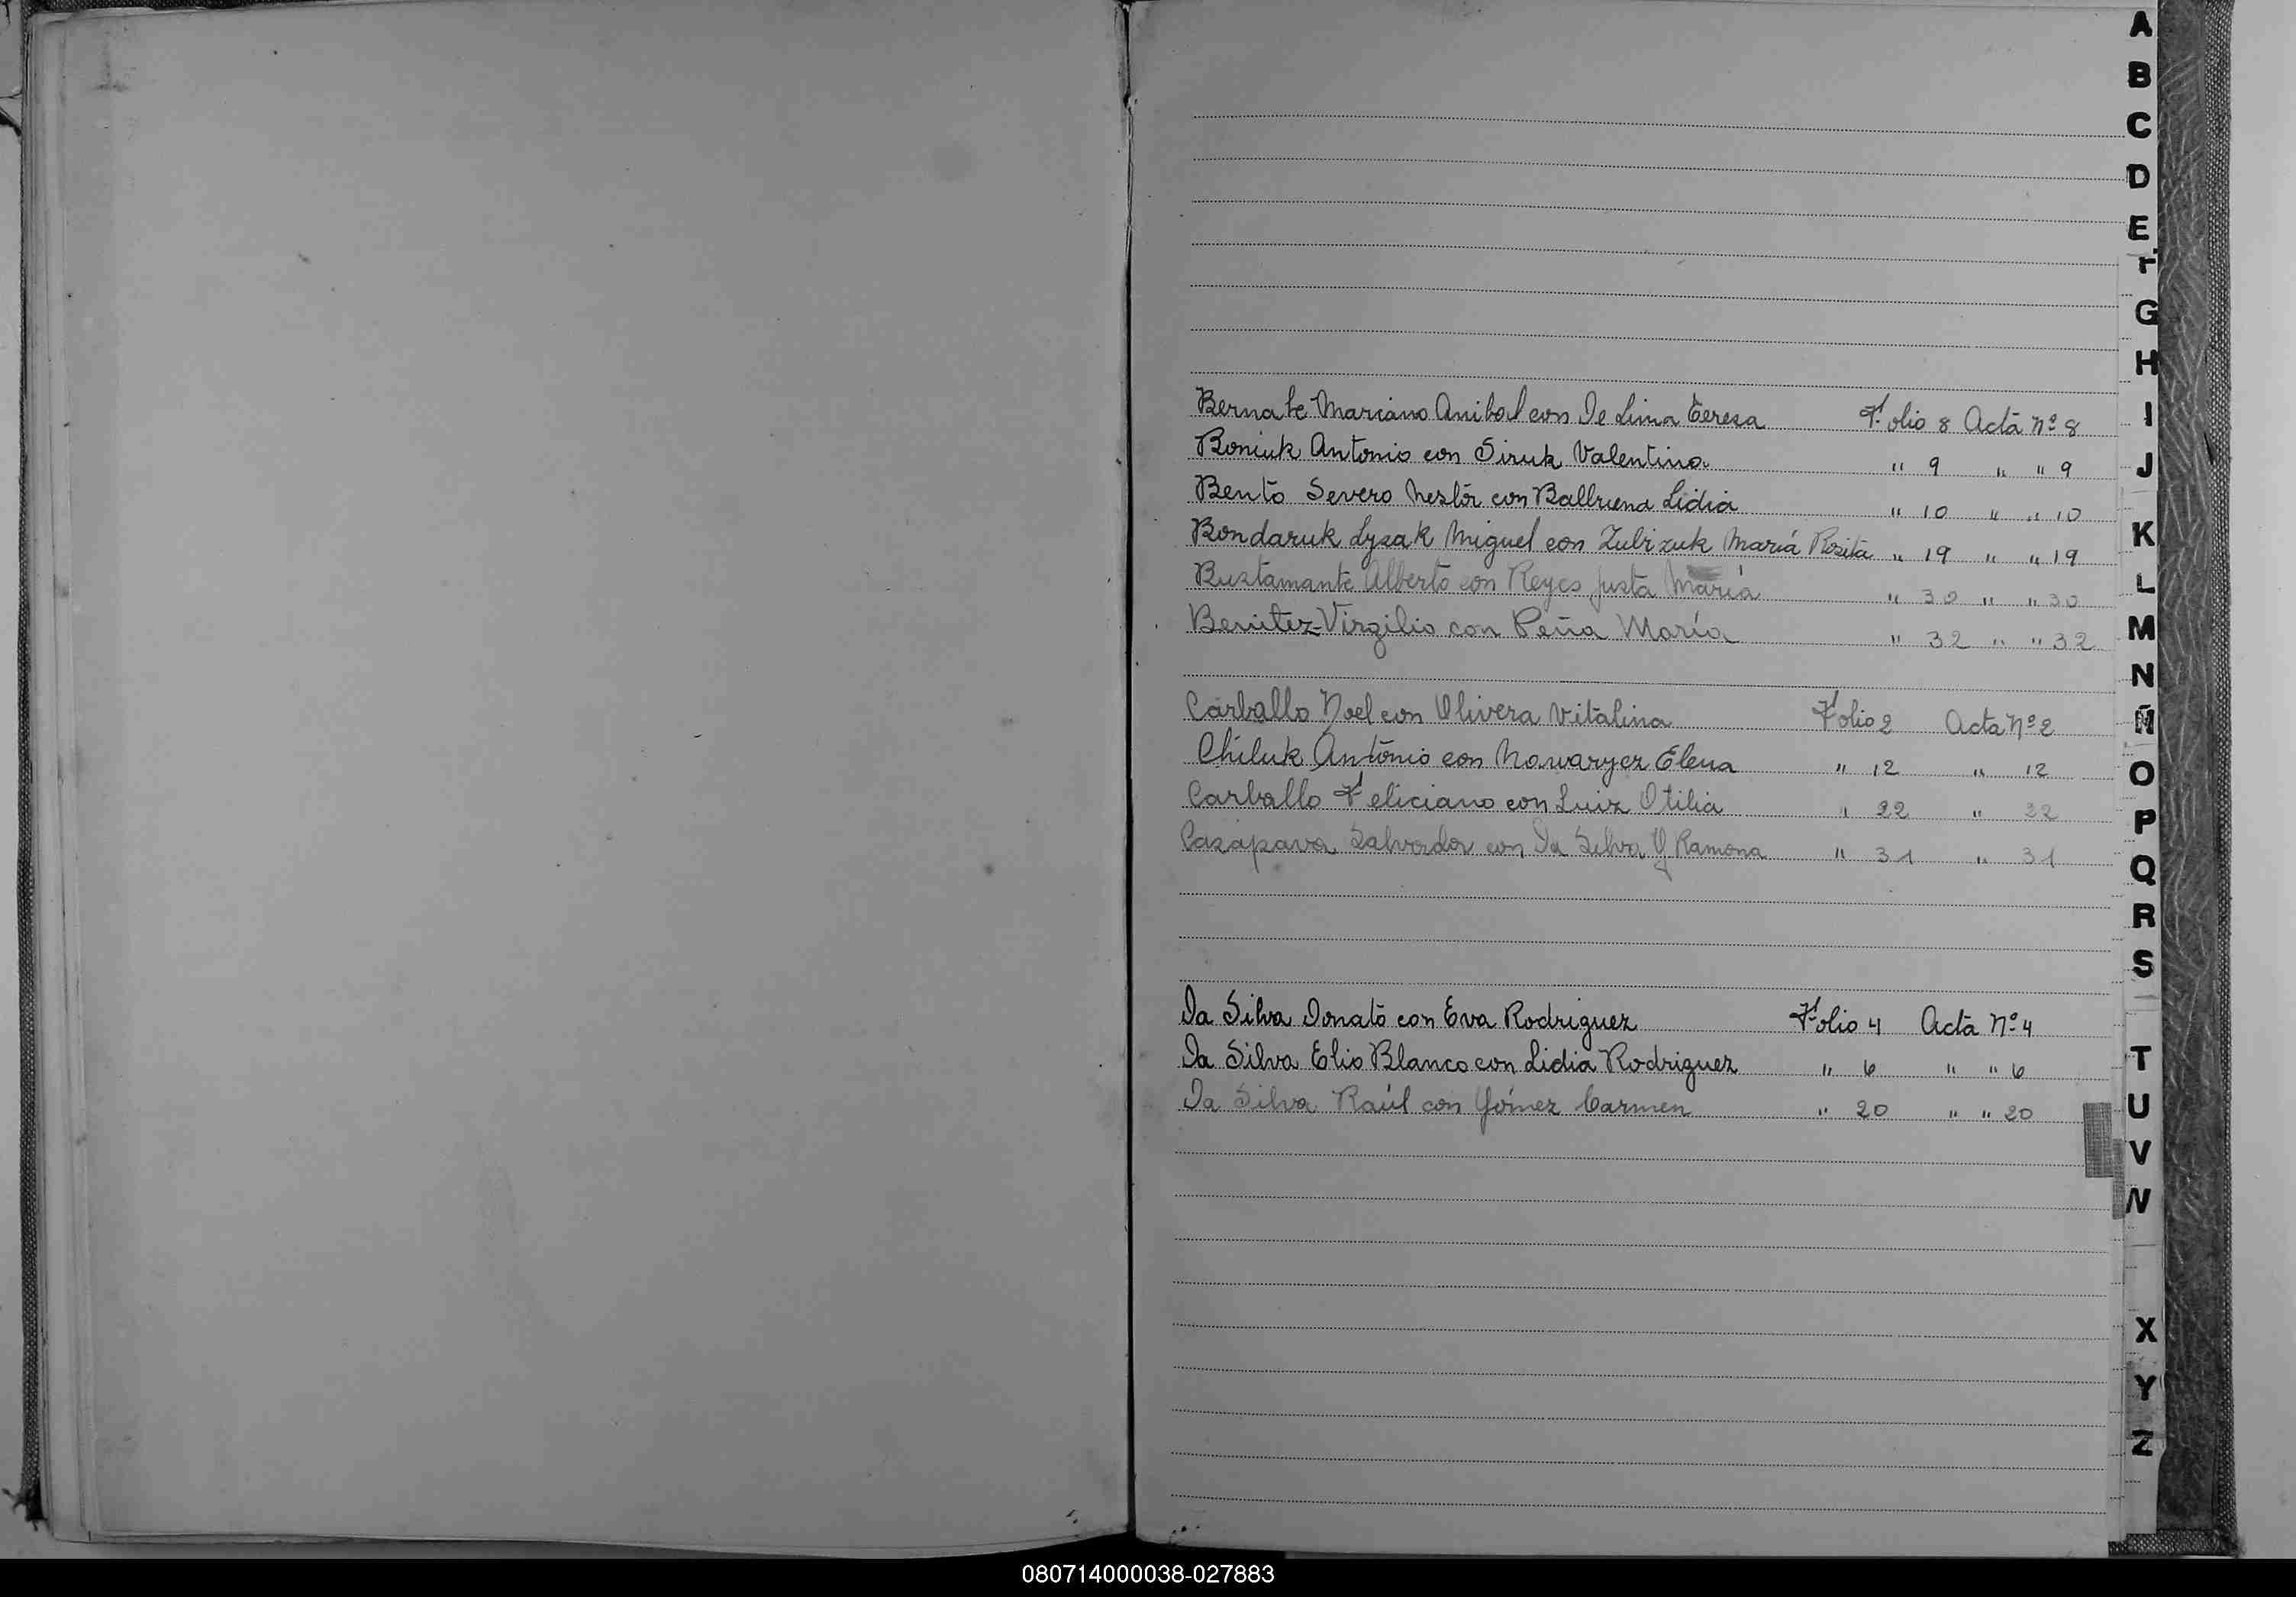 Bernate Mariano Anibal con De Lima Teresa Folio 8 Acta Nº 8
Boniuk Antonio con Siruk Valentina " 9 " " 9
Bento Severo Nestor con Ballrena Lidia " 10 " " 10
Bondaruk Lysak Miguel con Zubrzuk María Rosita " 19 " " 19
Bustamante Alberto con Reyes Justa María " 30 " " 30
Benitez Virgilio con Peña María " 32 " " 32
Carballo Noel con Olivera Vitalina Folio 2 Acta Nº 2
Chiluk Antonio con Nawarycz Elena " 12 " 12
Carballo Feliciano con Luiz Otilia " 22 " 22
Cazapava Salvador con Da Silva Ramona " 31 " 31
Da Silva Donato con Eva Rodriguez Folio 4 Acta Nº 4
Da Silva Elio Blanco con Lidia Rodriguez " 6 " " 6
Da Silva Raúl con Gómez Carmen " 20 " " 20
A
B
C
D
E
F
G
H
I
J
K
L
M
N
Ñ
O
P
Q
R
S
T
U
V
W
X
Y
Z
080714000038-027883